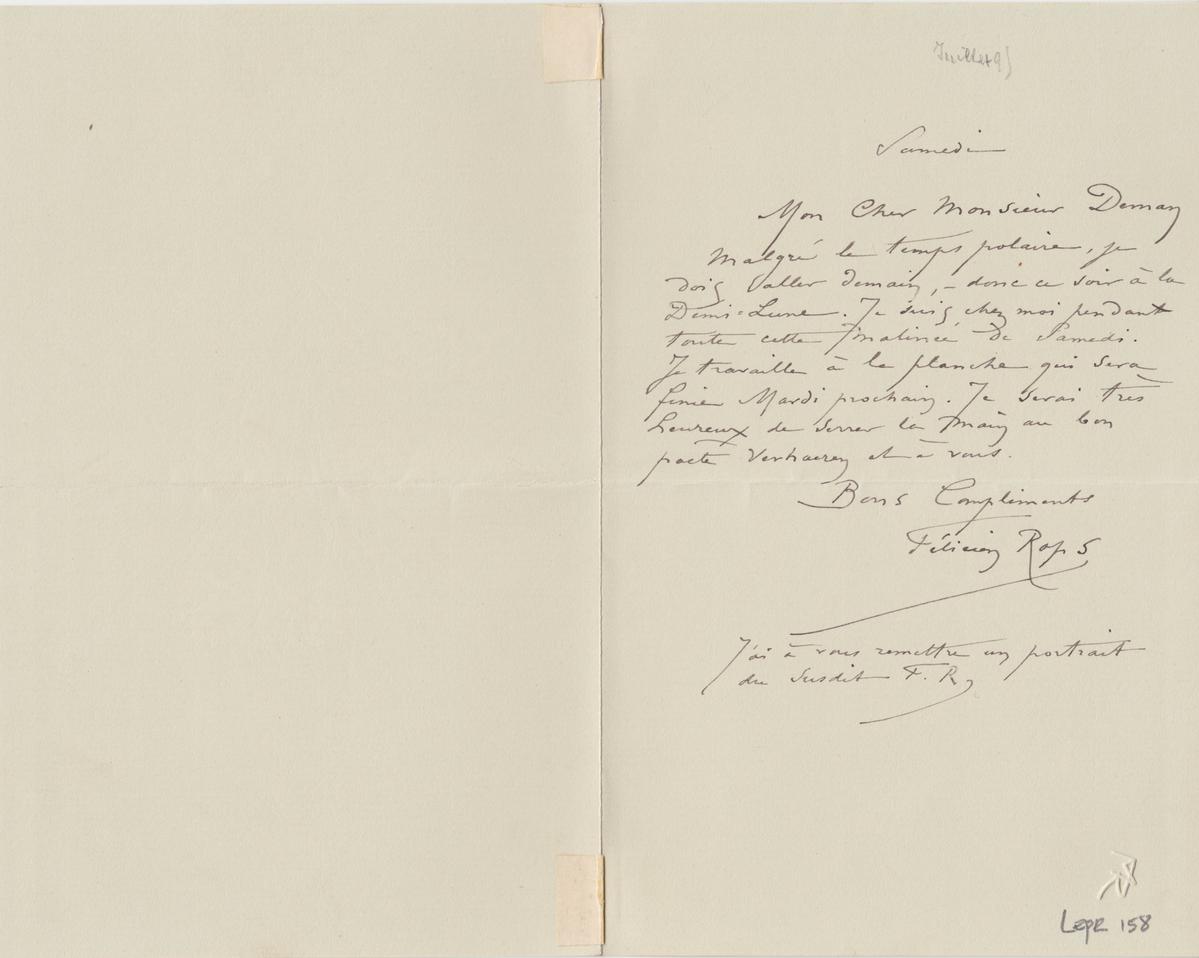 Juillet 9
Samedi
Mon Cher Monsieur Deman
Malgré le temps polaire, je
dois aller demain, – donc ce soir à la
Demi-Lune. Je suis chez moi pendant
toute cette matinée de Samedi.
Je travaille à la planche qui sera
finie Mardi prochain. Je serai très
heureux de serrer la main au bon
poete Verhaeren et à vous.
Bons Compliments
Félicien Rops
J'ai à vous remettre un portrait
du susdit F. R
LEPR 158